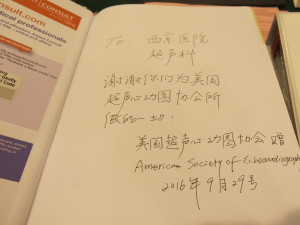 CONSULT
nsult.com
dical professionals
To 西京医院
超声科
谢谢你们为美国
超声心动图协会所
做的一切!
美国超声心动图协会 赠
American Society of Echocardiography
2016年9月29号